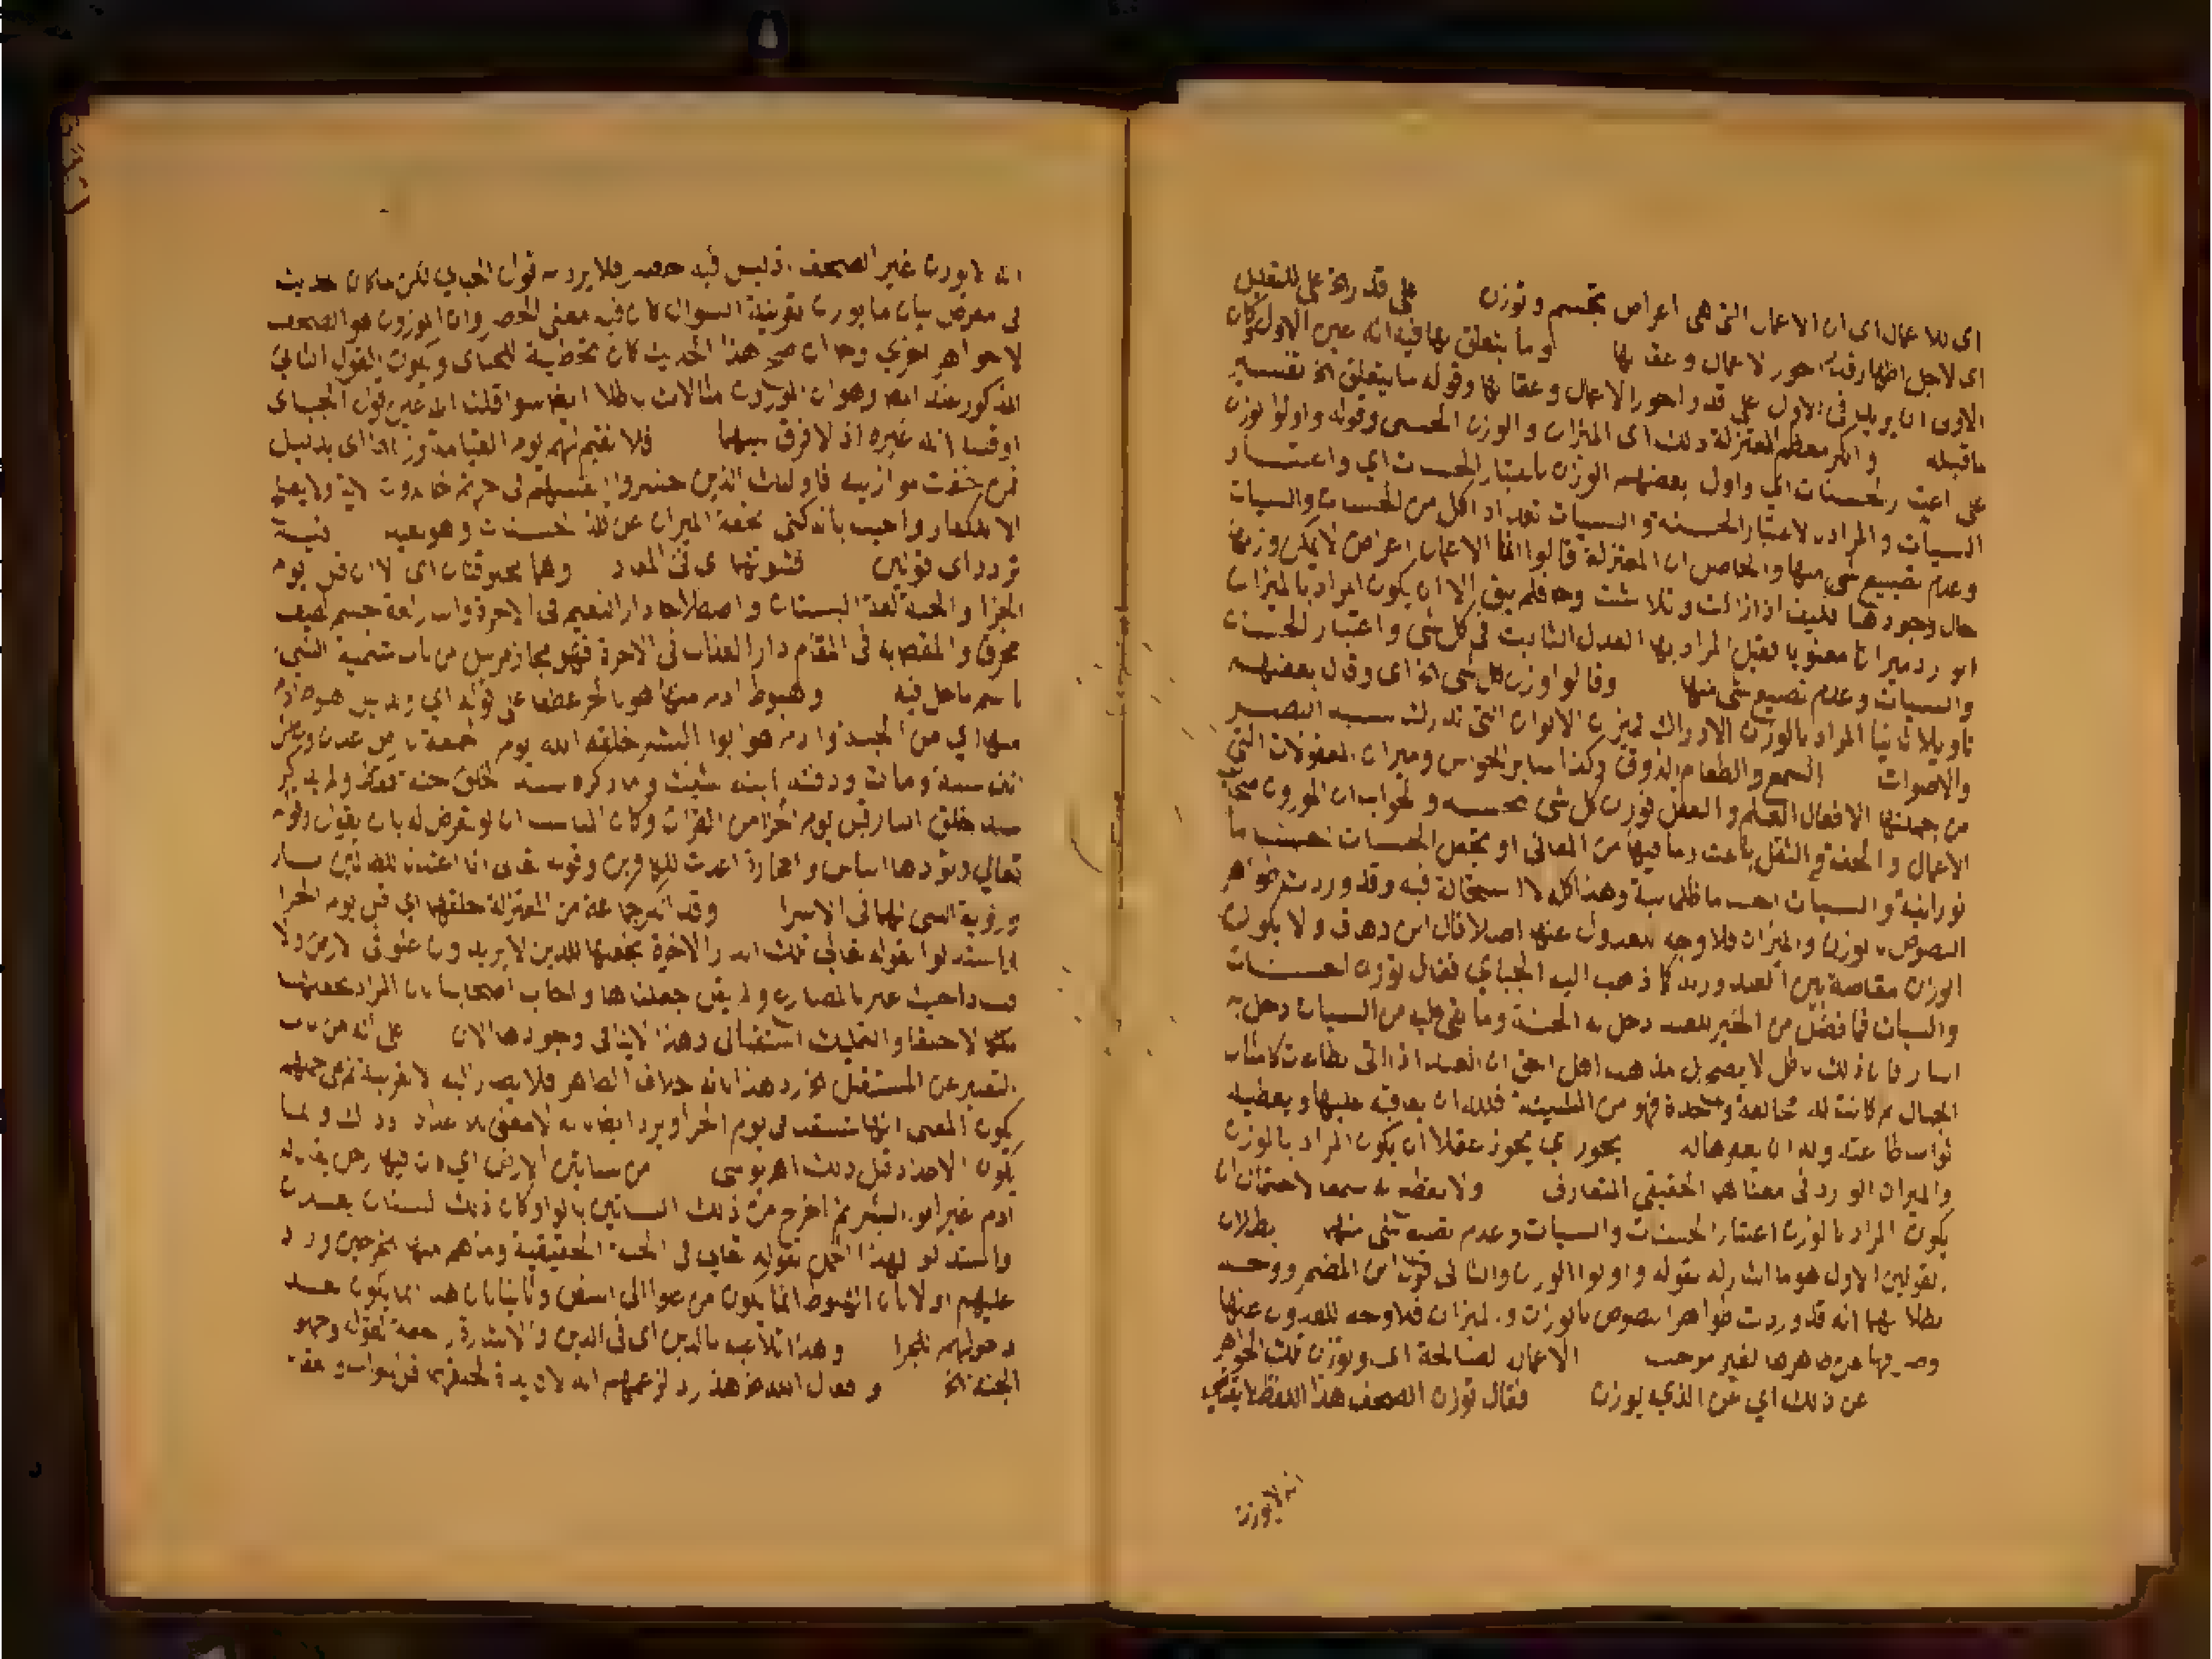 اى للاعمال اى ان الاعمال التى هى اعراض تجسم وتوزن على قدر الخ على للتعليل
اى لاجل اظهار قدر اجور الاعمال وعقابها وما يتعلق بها فيه انه عين الاول فكان
الاولى ان يزيد فى الاول على قدر اجور الاعمال وعقابها وقوله ما يتعلق الخ تفسير
ما قبله وانكر معظم المعتزلة ذلك اى الميزان والوزن الحسى وقوله واولوا الوزن
على اعتبار الحسنات اى واول بعضهم الوزن باعتبار الحسنات اي واعتبار
السيات والمراد بالاعتبار الحسنة والسيات تعداد كل من الحسنات والسيات
وعدم تضييع شى منها والحاصل ان المعتزلة قالوا انما الاعمال اعراض لا يمكن وزنها
حال وجودها فكيف اذا زالت وتلاشت وح فلم يبق الا ان يكون المراد بالميزان
الوارد ميزانا معنويا فقيل المراد بها العدل الثابت فى كل شى واعتبار الحسنات
والسيات وعدم تضييع شى منها وقالوا وزن كل شى الخ اى وقال بعضهم
تاويلا ثانيا المراد بالوزن الادراك فميزان الالوان التى تدرك به البصر
والاصوات السمع والطعام الذوق وكذا ساير الحواس وميزان المعقولات التى
من جملتها الافعال العلم والعقل فوزن كل شى بحسبه والجواب ان الموزون صحايف
الاعمال والخفة والثقل باعتبار ما فيها من المعانى او تجعل الحسنات اجساما
نورانية والسيات اجساما ظلمانية وهذا كله لا استحالة فيه وقد وردت ظواهر
النصوص بالوزن والميزان فلا وجه للعدول عنها اصلا قال ابن دهاق ولا يكون
الوزن مقاصة بين العبد وربه كما ذهب اليه الجباي فقال توزن الحسنات
والسيات فما فضل من الخير للعبد دخل به الجنة وما بقى عليه من السيات دخل به
النار فان ذلك باطل لا يصح بل مذهب اهل الحق ان العبد اذا اتى بطاعات كامثال
الجبال ثم كانت له مخالفة واحدة فهو من المشيئة فلله ان يعاقبه عليها ويعطيه
ثواب طاعته وله ان يغفرها له يجوز اي يجوز عقلا ان يكون المراد بالوزن
والميزان الوارد فى معناهما الحقيقى المتعارف ولا يقطع به سمعا لاحتمال ان
يكون المراد بالوزن اعتبار الحسنات والسيات وعدم تضييع شى منها بطلان
القولين الاول هو ما اشار له بقوله واولوا الوزن والثانى قول ابن المضجر ووجه
بطلانهما انه قد وردت ظواهر النصوص بالوزن والميزان فلا وجه للعدول عنها
وصرفها عن ظاهرها لغير موجب الاعمال الصالحة اى وتوزن تلك الجواهر
عن ذلك اي عن الذي يوزن فقال توزن الصحف هذا اللفظ لا يقتضى
انه لا يوزن
انه لا يوزن غير الصحف اذ ليس فيه حصر فلا يرد به قول الجباي لكن لما كان الحديث
فى معرض بيان ما يوزن بقرينة السوال كان فيه معنى الحصر وان الموزون هو الصحف
لا جواهر اخرى وح ان صح هذا الحديث كان تخطية للجباى ويكون القول الثانى
المذكور عند اهله وهو ان الموزون مثالات باطلا ايضا سوا قلنا انه عين قول الجباى
او قلنا انه غيره اذ لا فرق بينهما فلا نقيم لهم يوم القيامة وزنا اى بدليل
فمن خفت موازينه فاولئك الذين خسروا انفسهم فى جهنم خالدون الاية ولا يعنى
الا الكفار واجيب بانه كنى بخفة الميزان عن قلة الحسنات وهو بعيد فيه
تردد اى قولين فثبوتهما اى فى المعاد وهما مخلوقتان اى الان قبل يوم
الجزا والجنة لغة البستان واصطلاحا دار النعيم فى الاخرة والنار لغة جسم لطيف
محرق والمقصود به فى المقام دار العذاب فى الاخرة فهو مجاز مرسل من باب تسمية الشي
باسم ما حل فيه وهبوط ادم منها هو بالجر عطفا على قوله اي وبدليل هبوط ادم
منها اي من الجنة وادم هو ابو البشر خلقه الله يوم الجمعة
سنة ومات ودفنه ابنه شيث وما ذكره خلق الجنة فقط ولم يذكر
خلق النار قبل يوم الجزا من القران وكان المناسب ان يتعرض له بان يقول وقوله
تعالى وقودها الناس والحجارة اعدت للكافرين وقوله تعالى انا اعتدنا للظالمين نارا
ورؤية النبى لها فى الاسرا وقد انكر جماعة من المعتزلة خلقها اي قبل يوم الجزا
واستدلوا بقوله تعالى تلك الدار الاخرة نجعلها للذين لا يريدون علوا فى الارض ولا
فسادا حيث عبر بالمضارع ولم يقل جعلناها واجاب اصحابنا بان المراد نجعلها
ملكا لاحقا والتمليك استقبالى وهذا لا ينافى وجودها الان على انه من باب
التعبير عن المستقبل الخ رد هذا بانه خلاف الظاهر فلا يصار اليه الا بقرينة
يكون المعنى انها تستعد فى يوم الجزا ويرد ايضا بانه لا معنى للاعداد
يكون الاعداد قبل ذلك اهـ يوسى من بساتين الارض اي كان فيها رجل يقال له
ادم غير ابى البشر ثم اخرج من ذلك البساتين بالوا وكان ذلك البستان بعدن
واستدلوا لهذا الحمل بقوله تعالى فى الجنة الحقيقية وما هم منها بمخرجين ورد
عليهم اولا بان الهبوط انما يكون من علو الى اسفل وثانيا بان هذا انما يكون بعد
دخولهم للجزا وهذا تلاعب بالدين اى فى الدين والاشارة راجعة لقوله وحملوا
الجنة الخ وفعال الله الخ هذا رد لزعمهم انه لا فايدة لخلقها قبل الثواب والعقاب